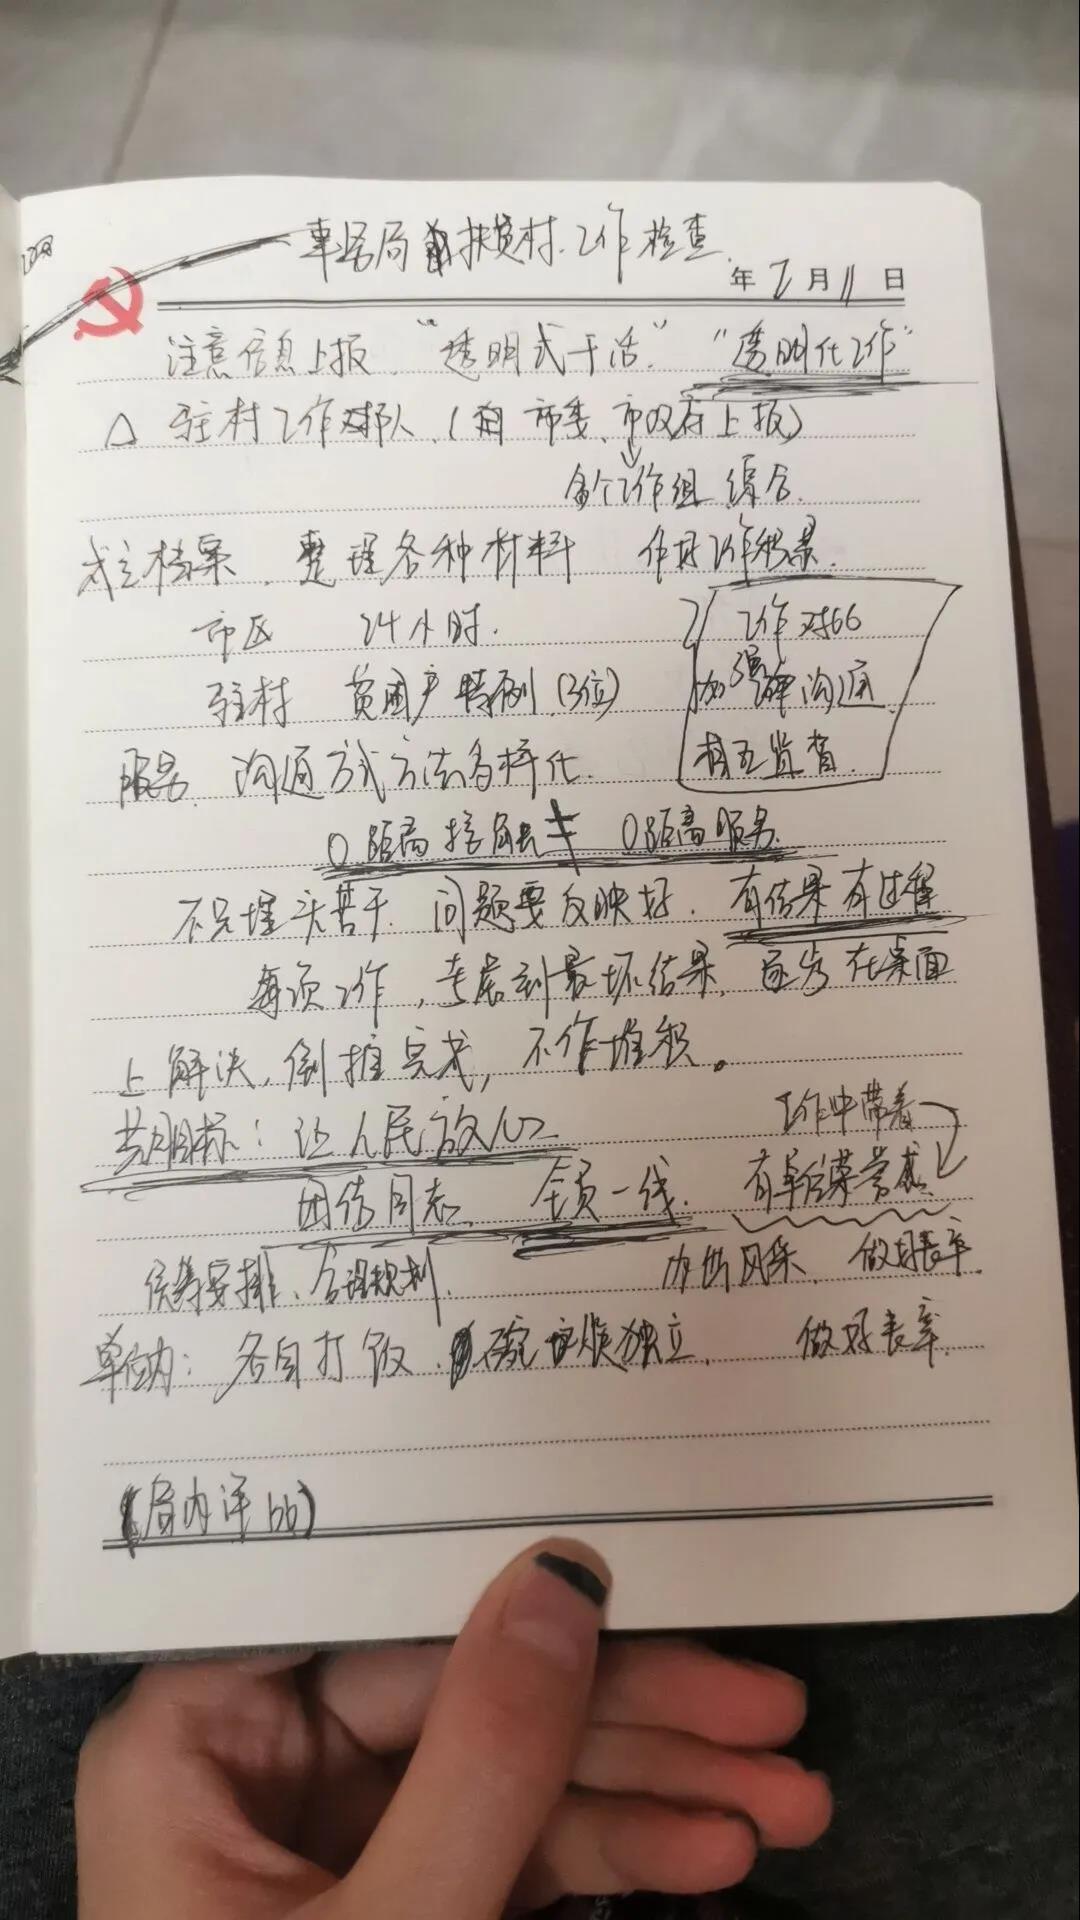 事务局 扶贫村.工作检查.
年2月11日
注意信息上报."透明式干活." "透明化工作"
△ 驻村工作队.(向市委、市政府上报)
各个工作组 综合.
成立档案.整理各种材料 作好工作场景.
市区 24小时.
工作对66
驻村 贫困户特例.(3位)
加强 沟通.
服务.沟通方式方法多样化.
相互监督.
0距离接触 0距离服务.
不只埋头苦干.问题要反映好.有结果有过程
每项工作,考虑到最坏结果.逐步在桌面
上解决,倒推完成,不作堆积。
共同目标:让人民放心 工作中带着
因信同志.全员一线. 有集体荣誉感.
统筹安排、合理规划. 风采.做好表率.
单位内:各自打饭. 独立. 做好表率.
(局内评bb)